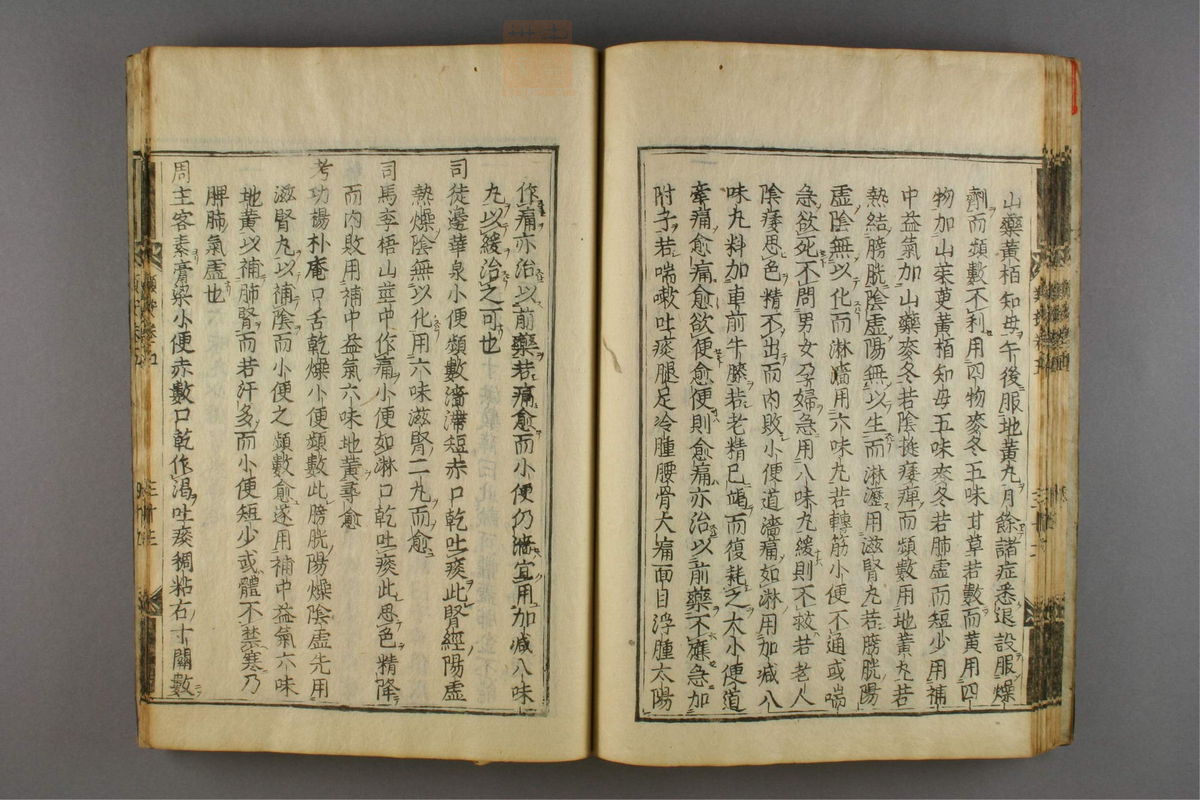 山藥黃栢知母午後服地黃丸月餘諸症悉退設服燥
劑而頻數不利用四物麥冬五味甘草若數而黃用四
物加山茱萸黃栢知母五味麥冬若肺虛而短少用補
中益氣加山藥麥冬若陰挺痿痺而頻數用地黃丸若
熱結膀胱陰虛陽無以生而淋瀝用滋腎丸若膀胱陽
虛陰無以化而淋濇用六味丸若轉筋小便不通或喘
急欲死不問男女孕婦急用八味丸緩則不救若老人
陰痿思色精不出而內敗小便道濇痛如淋用加減八
味丸料加車前牛膝若老精已竭而復耗之大小便道
牽痛愈痛愈欲便愈便則愈痛亦治以前藥不應急加
附子若喘嗽吐痰腿足冷腫腰骨大痛面目浮腫太陽
作痛亦治以前藥若痛愈而小便仍濇宜用加減八味
丸以緩治之可也
司徒邊華泉小便頻數濇滯短赤口乾吐痰此腎經陽虛
熱燥陰無以化用六味滋腎二丸而愈
司馬李梧山莖中作痛小便如淋口乾吐痰此思色精降
而內敗用補中益氣六味地黃等愈
考功楊朴庵口舌乾燥小便頻數此膀胱陽燥陰虛先用
滋腎丸以補陰而小便之頻數愈遂用補中益氣六味
地黃以補肺腎而若汗多而小便短少或體不禁寒乃
脾肺氣虛也
周主客素膏粱小便赤數口乾作渴吐痰稠粘右寸關數
三十三